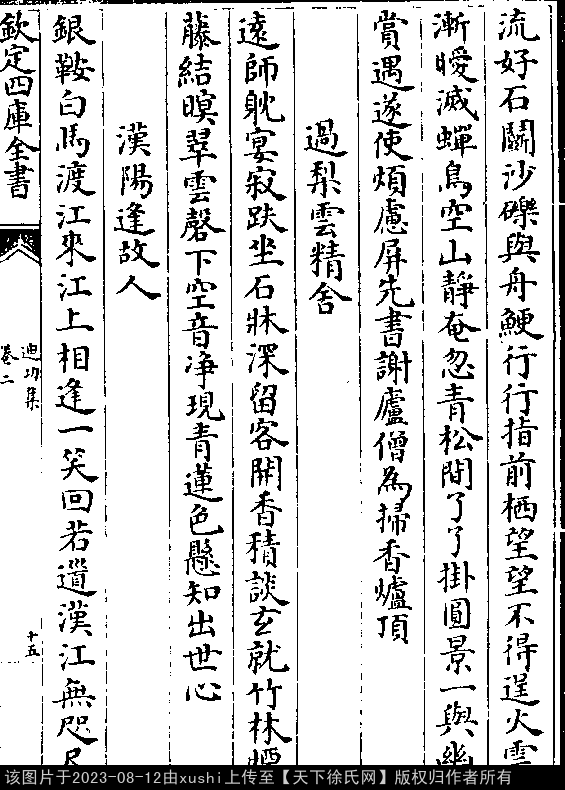 流好石闘沙礫與舟鯁行行指前栖望望不得逞火雲
漸曖滅蟬鳥空山靜奄忽青松間了了掛圓景一與幽
賞遇遂使煩慮屏先書謝廬僧為掃香爐頂
過梨雲精舍
遠師躭宴寂趺坐石牀深留客開香積談玄就竹林煙
藤結暝翠雲磬下空音净現青蓮色懸知出世心
漢陽逢故人
銀鞍白馬渡江來江上相逢一笑回若道漢江無咫尺
欽定四庫全書
迪功集
卷二
十五
该图片于2023-08-12由xushi上传至【天下徐氏网】版权归作者所有